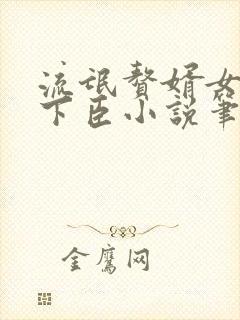 流氓赘婿女
下臣小说笔
金鹰网